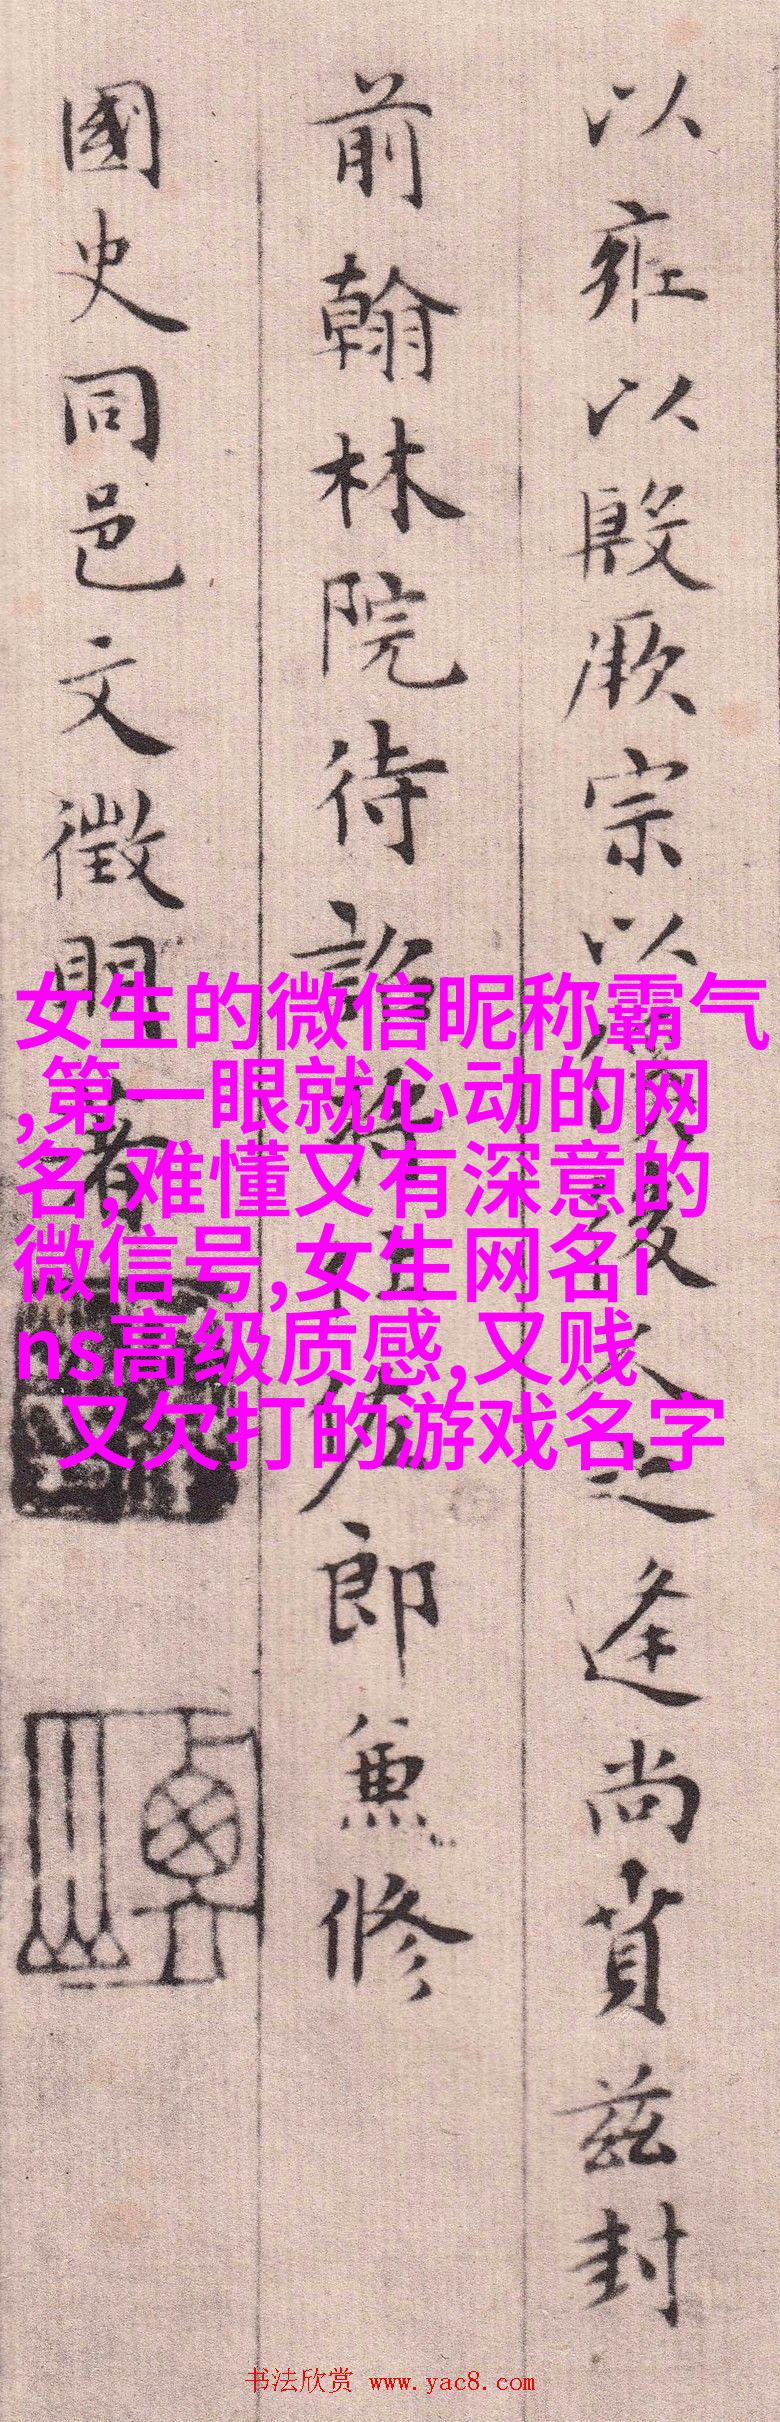 以雍以殷厥宗以
久之逢尚賁茲封
前翰林院待詔將仕佐郎兼修
國史同邑文徵明著
女生的微信昵称霸气
,第一眼就心动的网
名,难懂又有深意的
微信号,女生网名i
ns高级质感,又贱
又欠打的游戏名字
书法欣赏 www.yac8.com